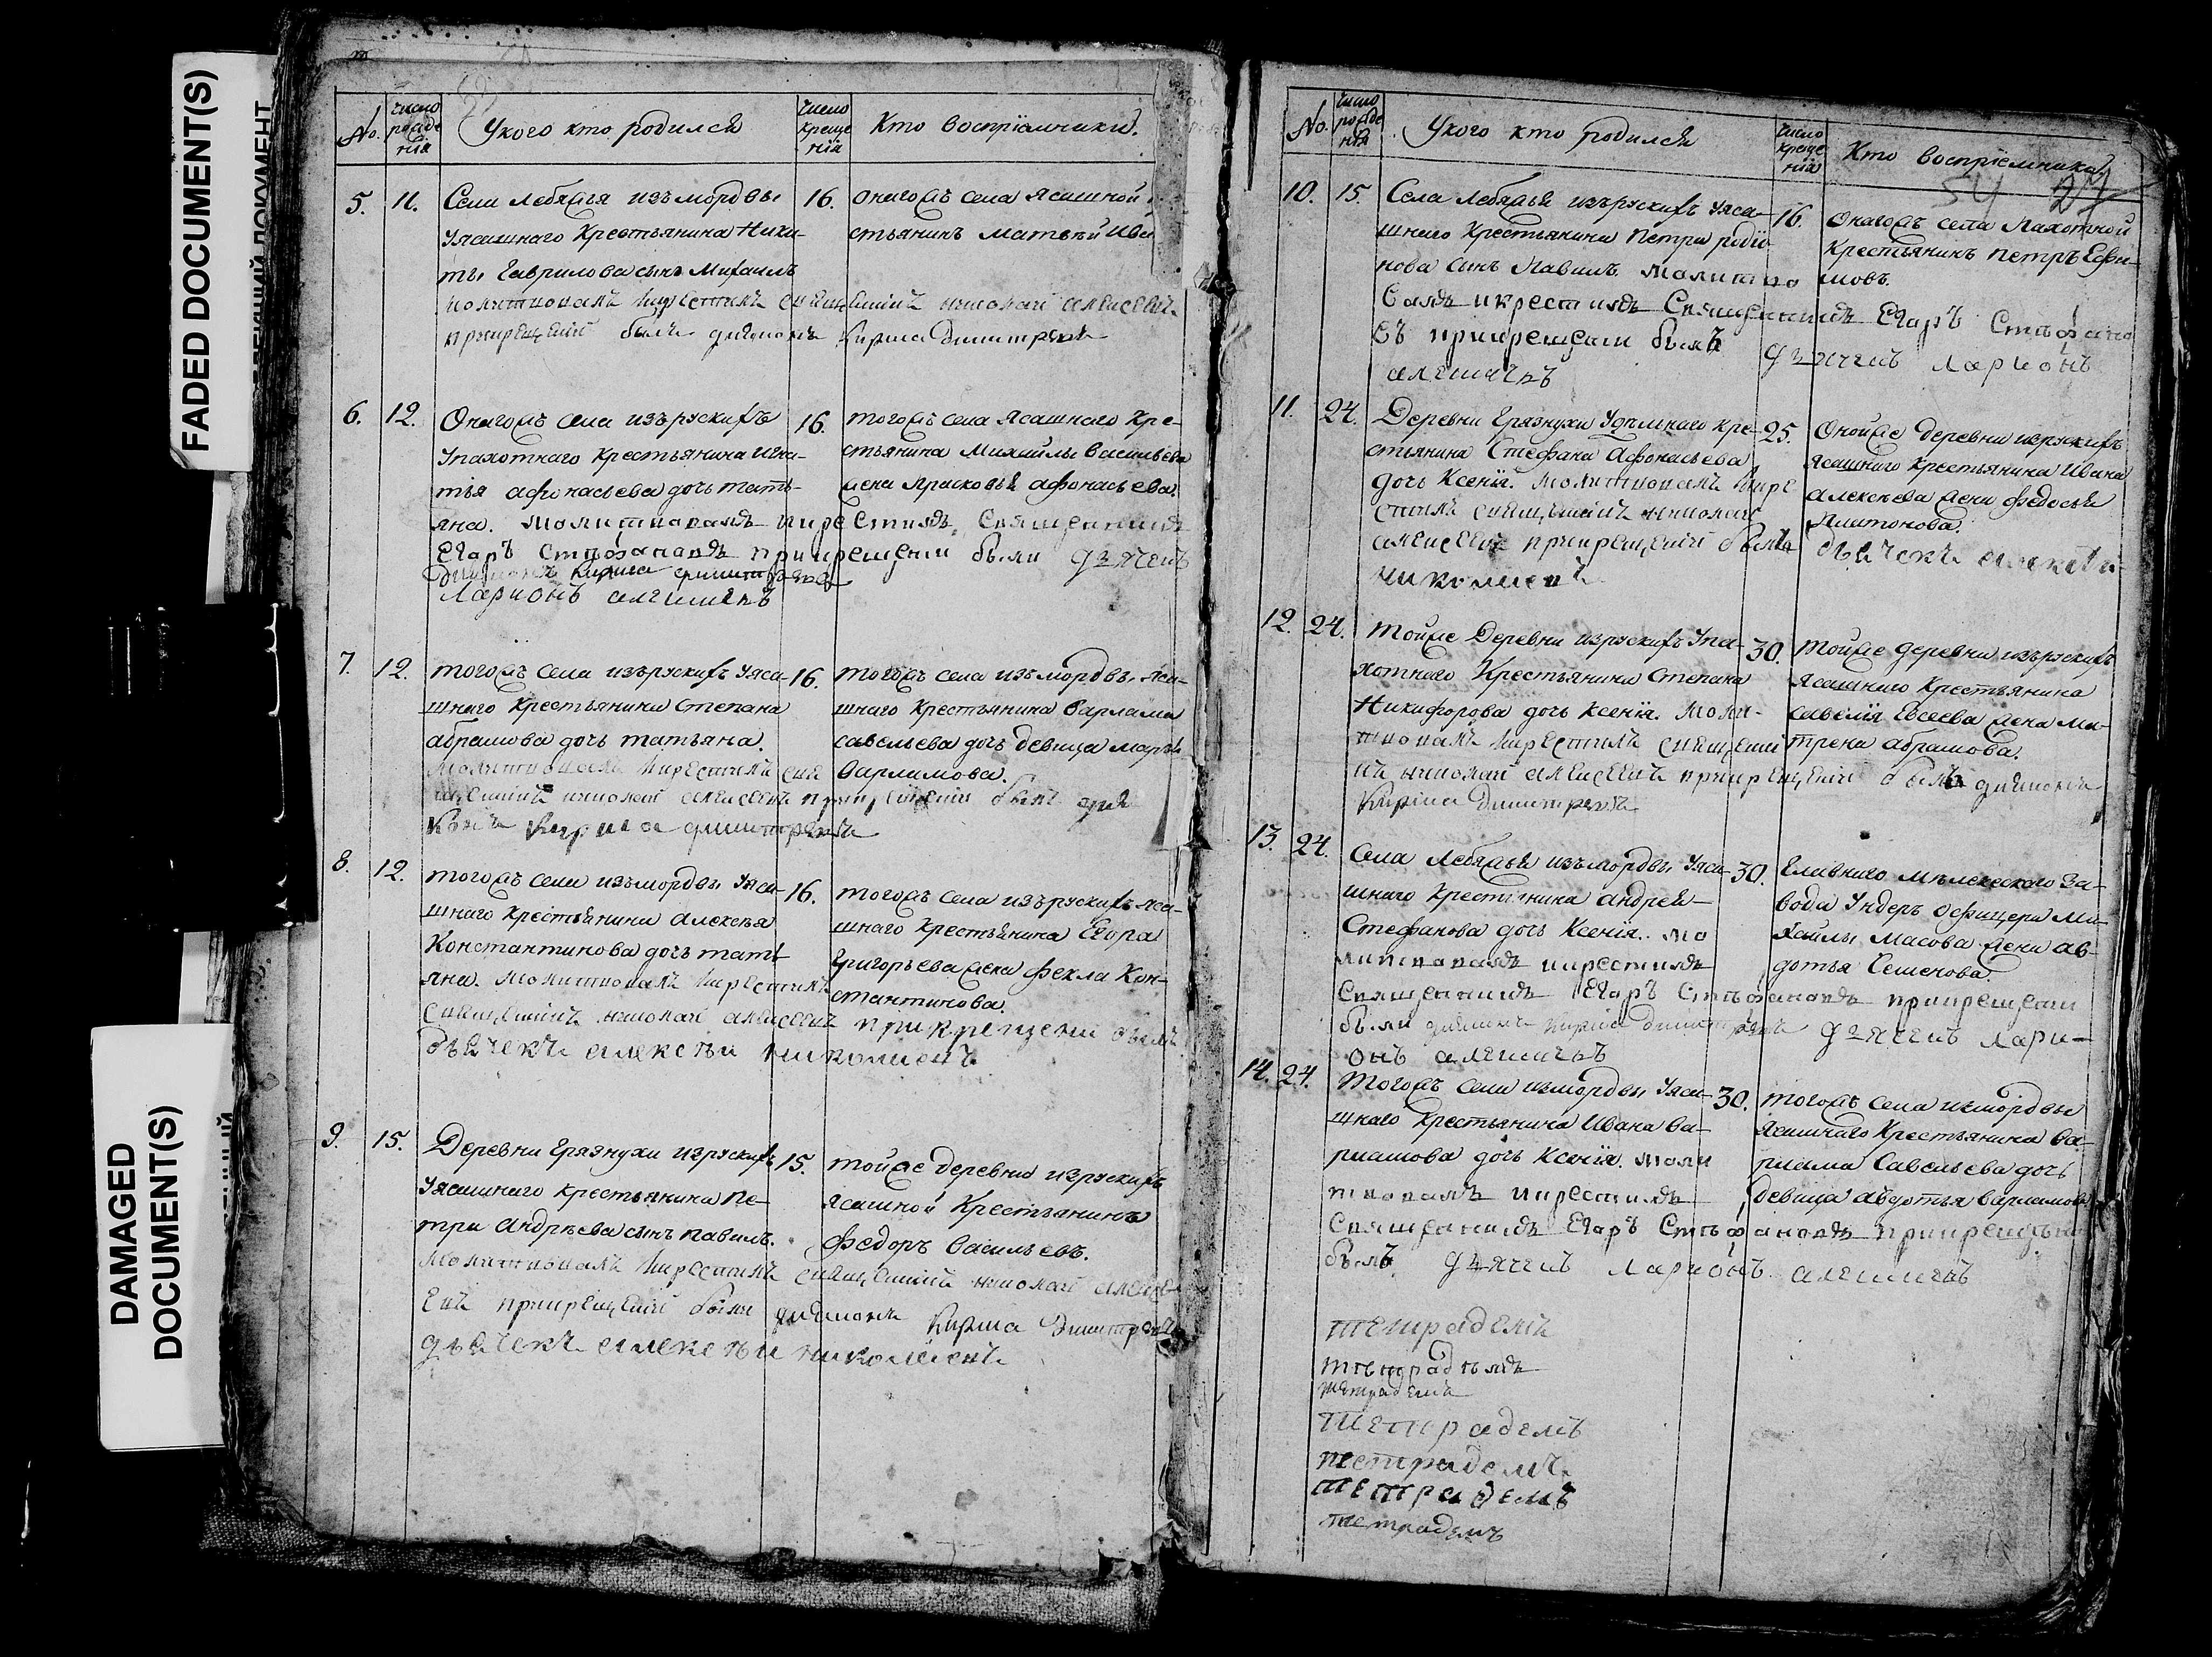 FADED DOCUMENT(S)
DAMAGED
DOCUMENT(S)
No.
число рожде нїя
Укого кто родился
число креще нїя
Кто воспрїемники.
5. 11.
Села Лебяжья изъ мордвы
Уясашнаго Крестьянина Ники-
ты Гаврилова сынъ Михаилъ
молитвовалъ икрестилъ священникъ николай алексеевъ
прикрещенїи былъ диаконъ Кирила Димитревъ
16.
оногожъ села Ясашной
стьянинъ Матвѣй
6. 12.
Оногожъ села изърускихъ
Упахотнаго Крестьянина Игна-
тья афонасьева дочь тать-
яна. молитвовалъ икрестилъ священникъ
Егаръ Стефановъ прикрещении были дьячекъ
диаконъ Кирила димитревъ
Ларионъ алешинъ
16.
тогожъ села Ясашнаго Кре-
стьянина Михайлы Васильева
жена Прасковья афонасьева.
7. 12.
тогожъ села изърускихъ Уяса-
шнаго Крестьянина Степана
абрамова дочь татьяна.
молитвовалъ икрестилъ свя
щенникъ николай алексеевъ прикрещении былъ диа
конъ Кирила димитревъ
16.
тогожъ села изъ мордвы Яса-
шнаго Крестьянина Варлама
савельева дочь девица марья
Варламова.
8. 12.
тогожъ села изъмордвы Уяса-
шнаго Крестьянина Алексѣя
Константинова дочь тать-
яна. молитвовалъ икрестилъ
священникъ николай алексеевъ прикрещени былъ
дьячекъ алексѣи николаевъ
16.
тогожъ села изърускихъ яса-
шнаго Крестьянина Егора
Григорьева жена Фекла Кон-
стантинова.
9. 15.
Деревни Грязнухи изрускихъ
Уясашнаго Крестьянина Пе-
тра Андрѣева сынъ Павилъ.
молитвовалъ икрестилъ священникъ николай алексе
евъ прикрещении были диаконъ Кирила Димитревъ
дьячекъ алексѣи николаевъ
15.
тойже деревни изрускихъ
Ясашной Крестьянинъ
Федоръ Васильевъ.
No.
число рожде нїя
Укого кто родился
число креще нїя
Кто воспрїемники.
54 27
10. 15.
Села Лебяжья изърускихъ Уяса-
шнаго Крестьянина Петра родїо-
нова сынъ Павилъ. молитво
валъ икрестилъ Священникъ Егаръ Стефано
въ прикрещении былъ дьячекъ ларионъ
алешинъ
16.
Оногожъ села Пахотной
Крестьянинъ Петръ Ефи-
мовъ.
11. 24.
Деревни Грязнухи Удѣльнаго кре-
стьянина Стефана Афонасьева
дочь Ксенїя. молитвовалъ икре
стилъ священникъ николай
алексеевъ прикрещении былъ дьячекъ алексѣи
николаевъ
25.
Онойже деревни изрускихъ
Ясашнаго Крестьянина Ивана
алексѣева жена федосья
Платонова.
12. 24.
тойже Деревни изрускихъ Упа-
хотнаго Крестьянина Степана
Никифорова дочь Ксенїя. моли-
твовалъ икрестилъ священни
къ николай алексеевъ прикрещении былъ диаконъ
Кирила Димитревъ
30.
тойже деревни изърускихъ
Ясашнаго Крестьянина
савелїя Евсеева жена Ма-
трена абрамова.
13. 24.
Села Лебяжья изъмордвы Уяса-
шнаго Крестьянина андрея
Стефанова дочь Ксенїя. мо
литвовалъ икрестилъ
Священникъ Егаръ Стефановъ прикрещении
были диаконъ Кирила Димитревъ дьячекъ лари-
онъ алешинъ
30.
Главнаго Мѣлекеского За-
вода Ундеръ офицера Ми-
хайлы Масова жена ав-
дотья Семенова.
14. 24.
тогожъ села измордвы Уяса-
шнаго Крестьянина Ивана Ва-
рламова дочь Ксенїя. моли
твовалъ икрестилъ
Священникъ Егаръ Стефановъ прикрещении
былъ дьячекъ ларионъ алешинъ
30.
тогожъ села измордвы
Ясашнаго Крестьянина Ва-
рлама Савельева дочь
девица авдотья варламова
тетрадемъ
тетрадѣмъ
тетрадемъ
тетрадемъ
тетрадемъ
тетрадемъ
тетрадемъ